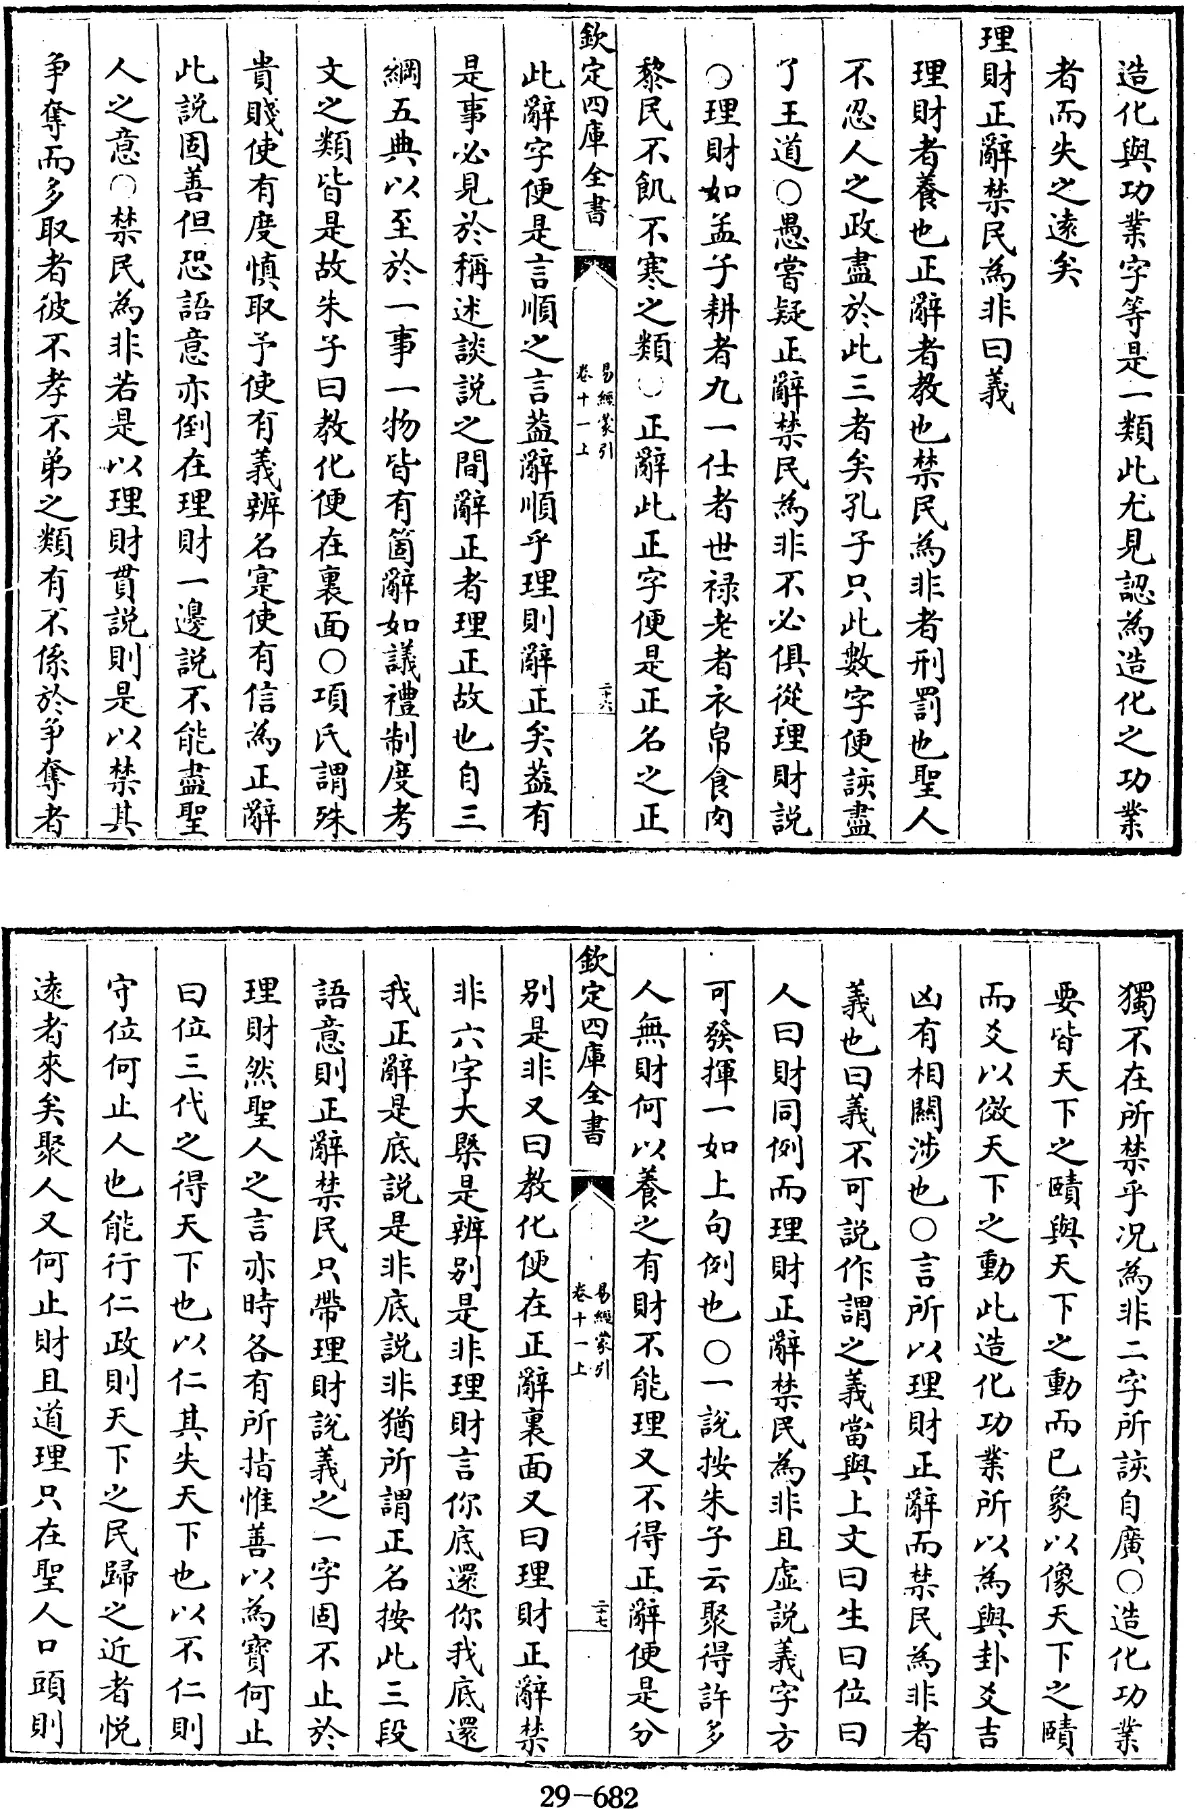 造化與功業字等是一類此尤見認為造化之功業
者而失之遠矣
理財正辭禁民為非曰義
理財者養也正辭者教也禁民為非者刑罰也聖人
不忍人之政盡於此三者矣孔子只此數字便該盡
了王道○愚嘗疑正辭禁民為非不必俱從理財說
○理財如孟子耕者九一仕者世祿老者衣帛食肉
黎民不飢不寒之類○正辭此正字便是正名之正
欽定四庫全書
易經蒙引
卷十一上
二十六
此辭字便是言順之言葢辭順乎理則辭正矣葢有
是事必見於稱述談說之間辭正者理正故也自三
綱五典以至於一事一物皆有箇辭如議禮制度考
文之類皆是故朱子曰教化便在裏面○項氏謂殊
貴賤使有度慎取予使有義辨名寔使有信為正辭
此說固善但恐語意亦倒在理財一邊說不能盡聖
人之意○禁民為非若是以理財貫說則是以禁其
爭奪而多取者彼不孝不弟之類有不係於爭奪者
獨不在所禁乎况為非二字所該自廣○造化功業
要皆天下之賾與天下之動而已象以像天下之賾
而爻以傚天下之動此造化功業所以為與卦爻吉
凶有相關涉也○言所以理財正辭而禁民為非者
義也曰義不可說作謂之義當與上文曰生曰位曰
人曰財同例而理財正辭禁民為非且虛說義字方
可發揮一如上句例也○一說按朱子云聚得許多
人無財何以養之有財不能理又不得正辭便是分
欽定四庫全書
易經蒙引
卷十一上
二十七
別是非又曰教化便在正辭裏面又曰理財正辭禁
非六字大槩是辨別是非理財言你底還你我底還
我正辭是底說是非底說非猶所謂正名按此三段
語意則正辭禁民只帶理財說義之一字固不止於
理財然聖人之言亦時各有所指惟善以為寶何止
曰位三代之得天下也以仁其失天下也以不仁則
守位何止人也能行仁政則天下之民歸之近者悅
遠者來矣聚人又何止財且道理只在聖人口頭則
29-682